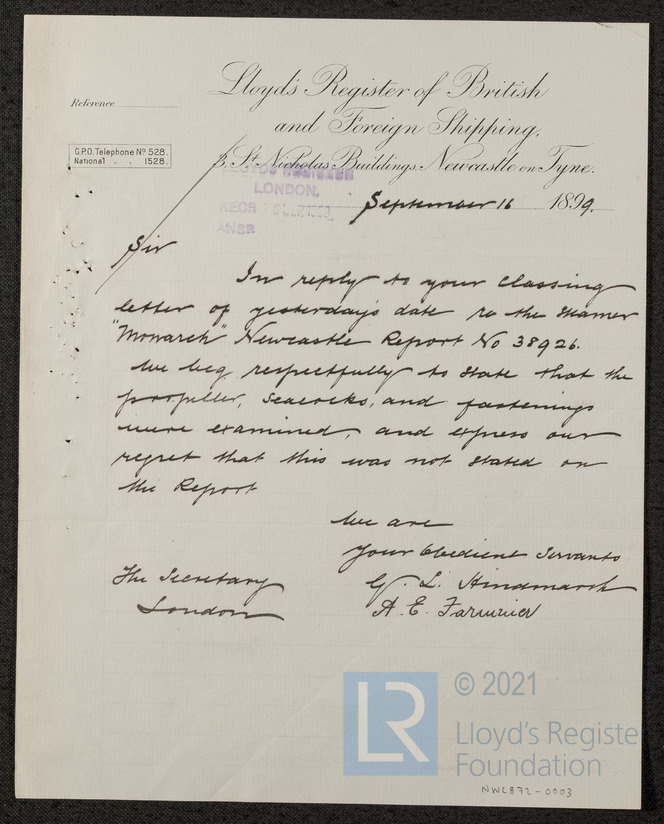 Lloyd's Register of British
and Foreign Shipping,
Reference
G.P.O. Telephone No 528.
National . . 1528.
3, St. Nicholas Buildings, Newcastle on Tyne.
LLOYD'S REGISTER
LONDON,
RECD
ANSR
September 16 1899.
Sir
In reply to your classing
letter of yesterday's date re the steamer
"Monarch" Newcastle Report No 38926.
We beg respectfully to state that the
propeller, seacocks, and fastenings
were examined, and express our
regret that this was not stated on
the Report
We are
Your Obedient Servants
G. L. Hindmarsh
A. E.
The Secretary
London
LR
© 2021
Lloyd's Registe
Foundation
NWC872-0003